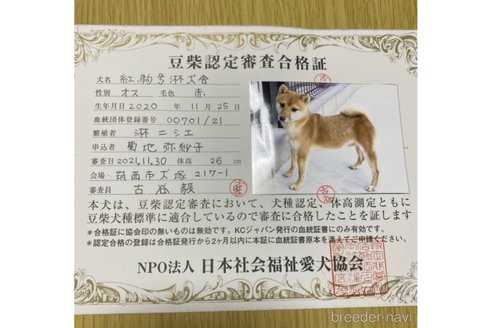 豆柴認定審査合格証
犬名 紅駒号 淋犬舎
性別 オス 毛色 赤
生年月日 2020年 11月 25日
血統団体登録番号 00701/21
繁殖者 淋ニシエ
申込者 菊地 弥紗子
審査日 2021.11.30 体高 26 cm
会場 筑西市犬塚 217-1
審査員 古谷 毅
本犬は、豆柴認定審査において、犬種認定、体高測定ともに
豆柴犬種標準に適合しているので審査に合格したことを証します
*合格証に協会印の無いものは無効です。KCジャパン発行の血統証書にのみ有効です。
*認定合格の登録は合格証発行から2ヶ月以内に本証に血統証書原本を添えてご申請ください。
NPO法人 日本社会福祉愛犬協会
breeder-navi